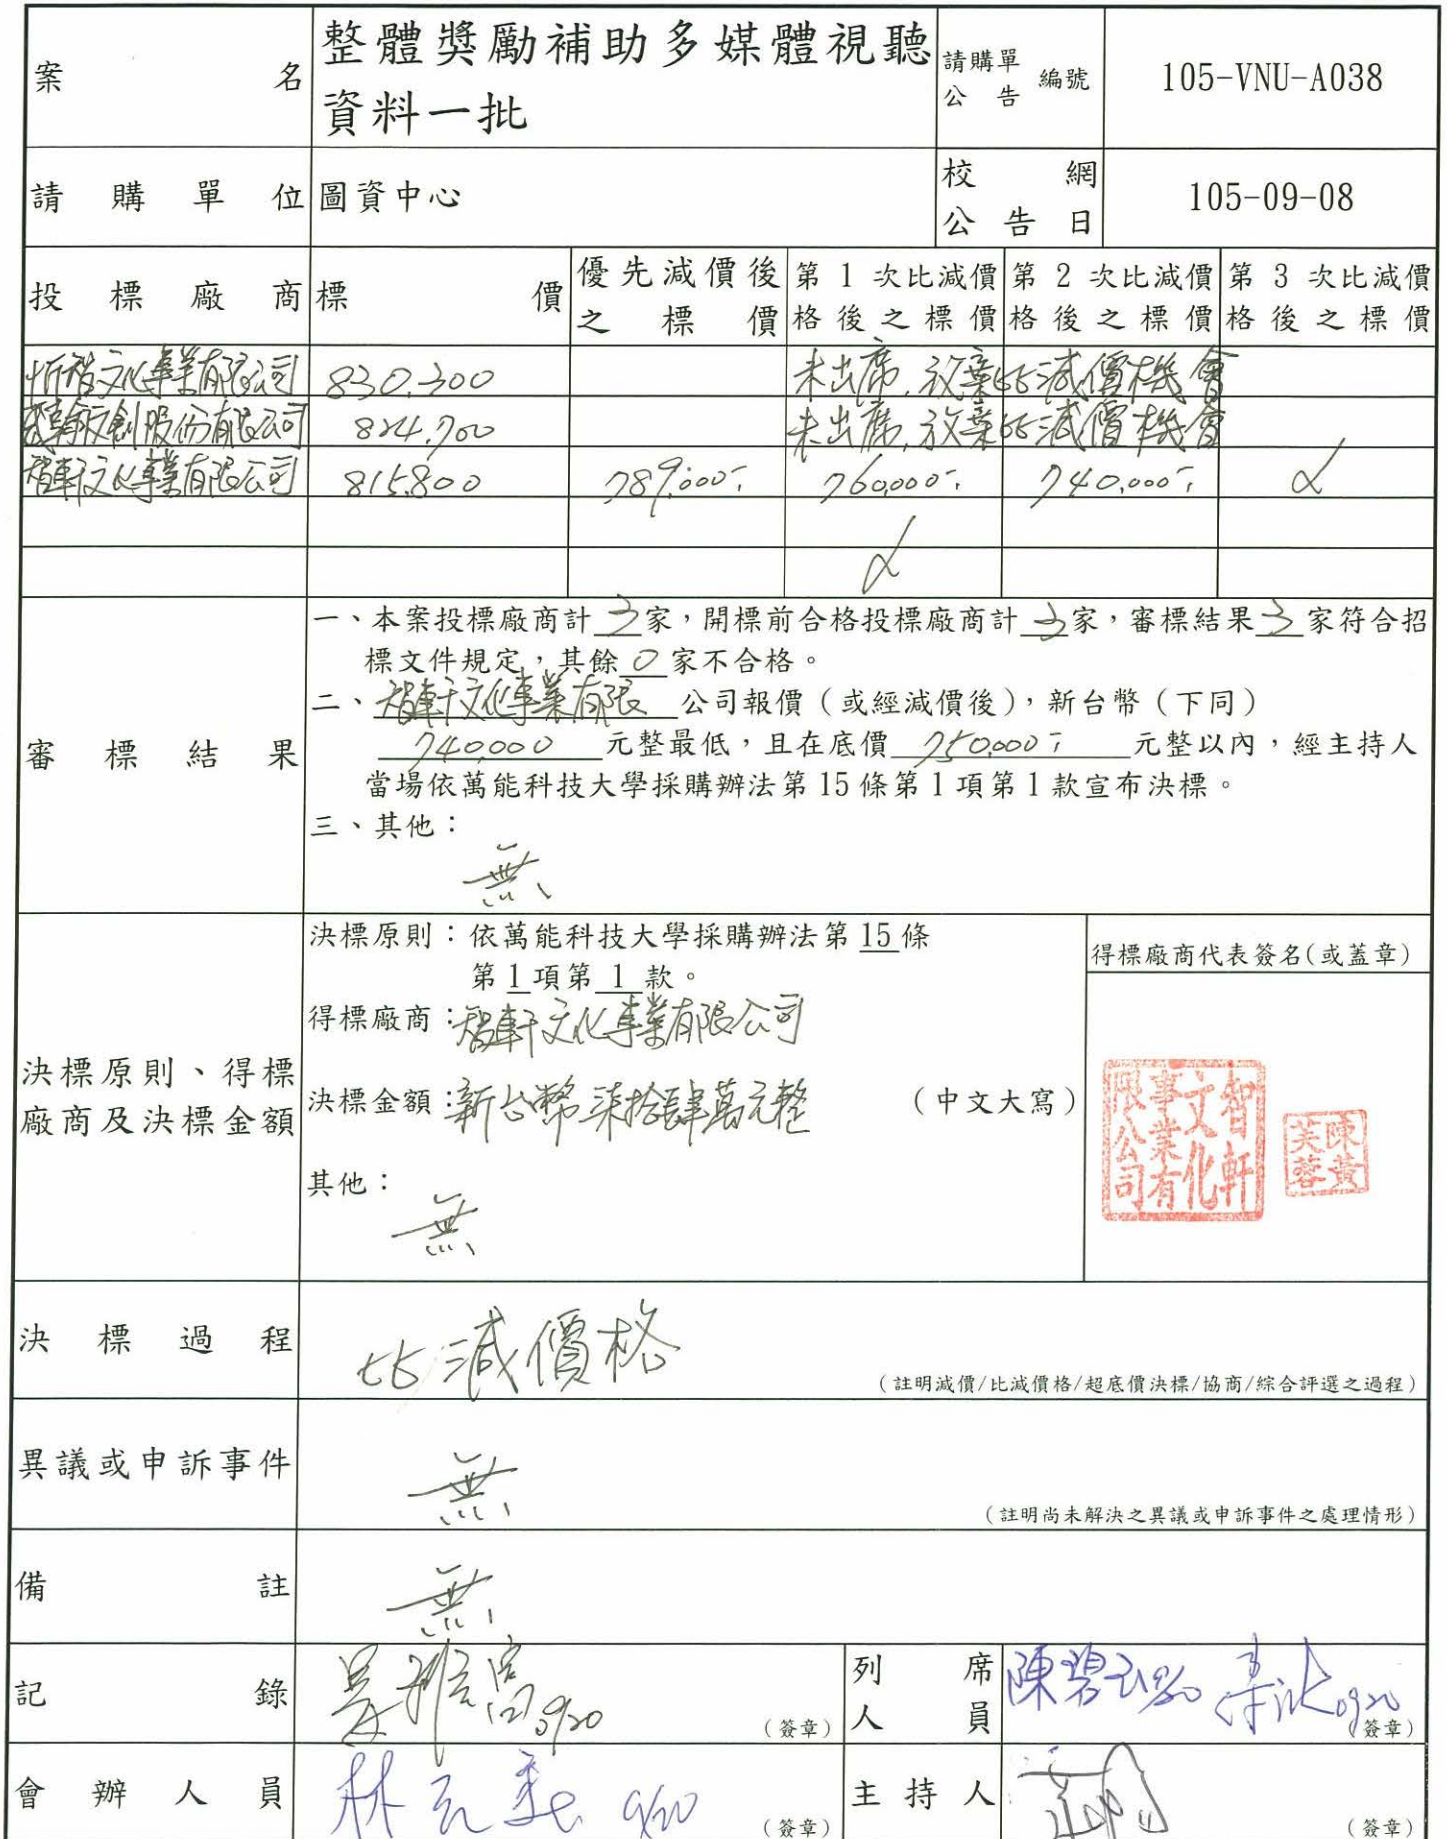 案名 整體獎勵補助多媒體視聽
資料一批
請購單
公告 編號 105-VNU-A038
請購單位 圖資中心
校網
公告日 105-09-08
投標廠商 標價 優先減價後
之標價 第1次比減價
格後之標價 第2次比減價
格後之標價 第3次比減價
格後之標價
文化事業有限公司 830,300 未出席,放棄比減價機會
文創股份有限公司 824,700 未出席,放棄比減價機會
智軒文化事業有限公司 815,800 789,000 760,000 740,000
審標結果
一、本案投標廠商計3家,開標前合格投標廠商計3家,審標結果3家符合招
標文件規定,其餘0家不合格。
二、智軒文化事業有限公司報價(或經減價後),新台幣(下同)
740,000元整最低,且在底價750,000元整以內,經主持人
當場依萬能科技大學採購辦法第15條第1項第1款宣布決標。
三、其他:
無
決標原則、得標
廠商及決標金額
決標原則:依萬能科技大學採購辦法第15條
第1項第1款。
得標廠商:智軒文化事業有限公司
決標金額:新台幣柒拾肆萬元整 (中文大寫)
其他:
無
得標廠商代表簽名(或蓋章)
智軒
文化
事業有
限公司
陳黃
芙蓉
決標過程 比減價格
(註明減價/比減價格/超底價決標/協商/綜合評選之過程)
異議或申訴事件 無
(註明尚未解決之異議或申訴事件之處理情形)
備註 無
記錄 0920 (簽章)
列席
人員 陳碧 0920 (簽章)
會辦人員 林 0920 (簽章)
主持人 (簽章)